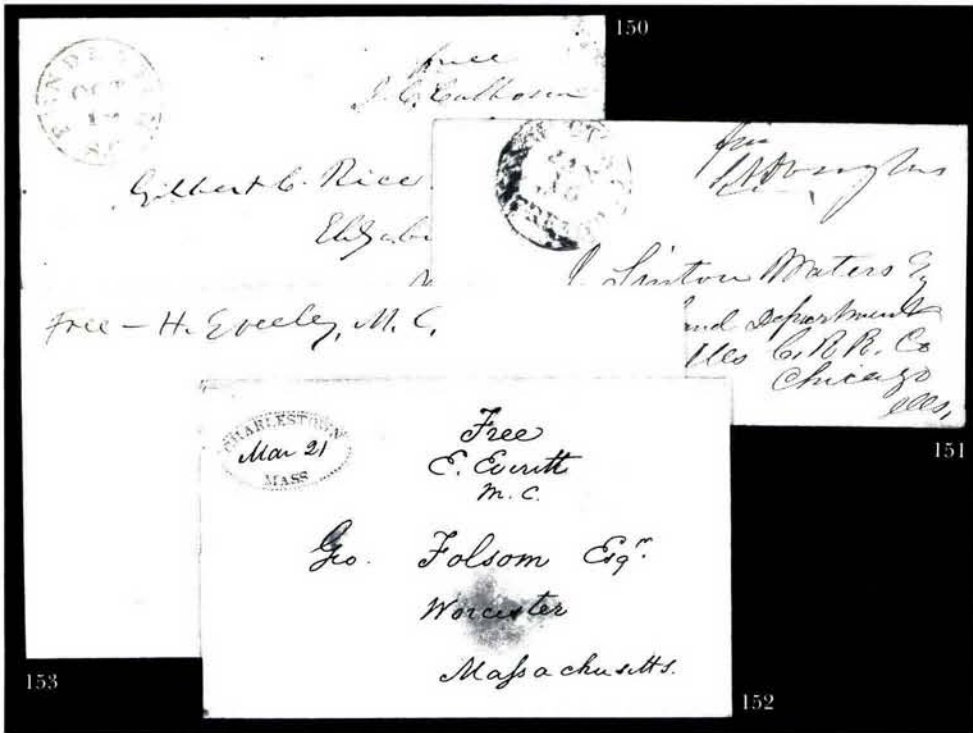 150
PENDLETON
OCT
18
S.C.
free
J. C. Calhoun
Gilbert C. Rice
Elizabe
free
S A Douglas
J. Linton Waters Esq
and Department
Ills C. R R. Co
Chicago
Ills,
151
Free – H. Eveeley, M. C.
153
CHARLESTOWN
Mar 21
MASS
Free
E. Everitt
M. C.
Geo. Folsom Esqr.
Worcester
Massachusetts.
152